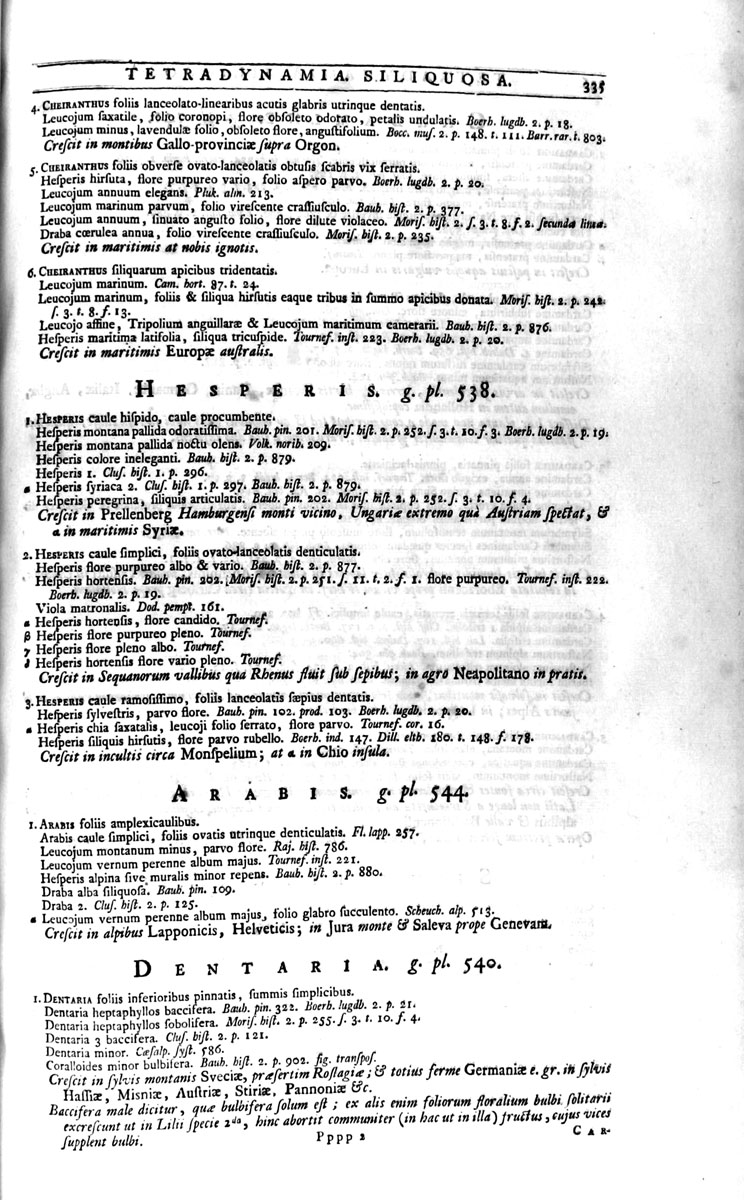 TETRADYNAMIA. SILIQUOSA. 335
4. CHEIRANTHUS foliis lanceolato-linearibus acutis glabris utrinque dentatis.
Leucojum saxatile, folio coronopi, flore obsoleto odorato, petalis undulatis. Boerh. lugdb. 2. p. 18.
Leucojum minus, lavendulæ folio, obsoleto flore, angustifolium. Bocc. mus. 2. p. 148. t. 111. Barr. rar. t. 803.
Crescit in montibus Gallo-provinciæ supra Orgon.
5. CHEIRANTHUS foliis obverse ovato-lanceolatis obtusis scabris vix serratis.
Hesperis hirsuta, flore purpureo vario, folio aspero parvo. Boerh. lugdb. 2. p. 20.
Leucojum annuum elegans. Pluk. alm. 213.
Leucojum marinum parvum, folio virescente crassiusculo. Bauh. hist. 2. p. 377.
Leucojum annuum, sinuato angusto folio, flore dilute violaceo. Moris. hist. 2. s. 3. t. 8. f. 2. secunda linea.
Draba cœrulea annua, folio virescente crassiusculo. Moris. hist. 2. p. 235.
Crescit in maritimis at nobis ignotis.
6. CHEIRANTHUS siliquarum apicibus tridentatis.
Leucojum marinum. Cam. hort. 87. t. 24.
Leucojum marinum, foliis & siliqua hirsutis eaque tribus in summo apicibus donata. Moris. hist. 2. p. 242.
s. 3. t. 8. f. 13.
Leucojo affine, Tripolium anguillaræ & Leucojum maritimum camerarii. Bauh. hist. 2. p. 876.
Hesperis maritima latifolia, siliqua tricuspide. Tournef. inst. 223. Boerh. lugdb. 2. p. 20.
Crescit in maritimis Europæ australis.
HESPERIS. g. pl. 538.
1. HESPERIS caule hispido, caule procumbente.
Hesperis montana pallida odoratissima. Bauh. pin. 201. Moris. hist. 2. p. 252. s. 3. t. 10. f. 3. Boerh. lugdb. 2. p. 19.
Hesperis montana pallida noctu olens. Volk. norib. 209.
Hesperis colore ineleganti. Bauh. hist. 2. p. 879.
Hesperis 1. Clus. hist. 1. p. 296.
α Hesperis syriaca 2. Clus. hist. 1. p. 297. Bauh. hist. 2. p. 879.
Hesperis peregrina, siliquis articulatis. Bauh. pin. 202. Moris. hist. 2. p. 252. s. 3. t. 10. f. 4.
Crescit in Prellenberg Hamburgensi monti vicino, Ungariæ extremo qua Austriam spectat, &
α in maritimis Syriæ.
2. HESPERIS caule simplici, foliis ovato-lanceolatis denticulatis.
Hesperis flore purpureo albo & vario. Bauh. hist. 2. p. 877.
Hesperis hortensis. Bauh. pin. 202. Moris. hist. 2. p. 251. s. 11. t. 2. f. 1. flore purpureo. Tournef. inst. 222.
Boerh. lugdb. 2. p. 19.
Viola matronalis. Dod. pempt. 161.
α Hesperis hortensis, flore candido. Tournef.
β Hesperis flore purpureo pleno. Tournef.
γ Hesperis flore pleno albo. Tournef.
δ Hesperis hortensis flore vario pleno. Tournef.
Crescit in Sequanorum vallibus qua Rhenus fluit sub sepibus; in agro Neapolitano in pratis.
3. HESPERIS caule ramosissimo, foliis lanceolatis sæpius dentatis.
Hesperis sylvestris, parvo flore. Bauh. pin. 102. prod. 103. Boerh. lugdb. 2. p. 20.
α Hesperis chia saxatalis, leucoji folio serrato, flore parvo. Tournef. cor. 16.
Hesperis siliquis hirsutis, flore parvo rubello. Boerh. ind. 147. Dill. elth. 180. t. 148. f. 178.
Crescit in incultis circa Monspelium; at α in Chio insula.
ARABIS. g. pl. 544.
1. ARABIS foliis amplexicaulibus.
Arabis caule simplici, foliis ovatis utrinque denticulatis. Fl. lapp. 257.
Leucojum montanum minus, parvo flore. Raj. hist. 786.
Leucojum vernum perenne album majus. Tournef. inst. 221.
Hesperis alpina sive muralis minor repens. Bauh. hist. 2. p. 880.
Draba alba siliquosa. Bauh. pin. 109.
Draba 2. Clus. hist. 2. p. 125.
α Leucojum vernum perenne album majus, folio glabro succulento. Scheuch. alp. 513.
Crescit in alpibus Lapponicis, Helveticis; in Jura monte & Saleva prope Genevam.
DENTARIA. g. pl. 540.
1. DENTARIA foliis inferioribus pinnatis, summis simplicibus.
Dentaria heptaphyllos baccifera. Bauh. pin. 322. Boerh. lugdb. 2. p. 21.
Dentaria heptaphyllos sobolifera. Moris. hist. 2. p. 255. s. 3. t. 10. f. 4.
Dentaria 3 baccifera. Clus. hist. 2. p. 121.
Dentaria minor. Cæsalp. syst. 586.
Coralloides minor bulbifera. Bauh. hist. 2. p. 902. fig. transpos.
Crescit in sylvis montanis Sveciæ, præsertim Roslagiæ; & totius ferme Germaniæ e. gr. in sylvis
Hassiæ, Misniæ, Austriæ, Stiriæ, Pannoniæ &c.
Baccifera male dicitur, quæ bulbifera solum est; ex alis enim foliorum floralium bulbi solitarii
excrescunt ut in Lilii specie 2da, hinc abortit communiter (in hac ut in illa) fructus, cujus vices
supplent bulbi.
Pppp 2
CAR-